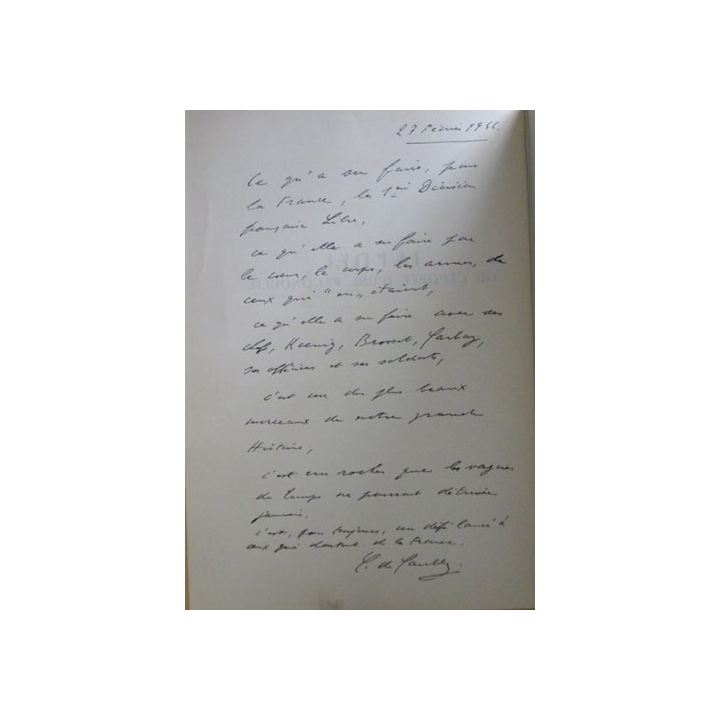 27 Février 1946.
Ce qu'a su faire, pour
la France, la 1ère Division
française Libre,
ce qu'elle a su faire par
le cœur, le corps, les armes, de
ceux qui "en" étaient,
ce qu'elle a su faire avec ses
chefs, Koenig, Brosset, Garbay,
ses officiers et ses soldats,
c'est un des plus beaux
morceaux de notre grande
Histoire,
c'est un rocher que les vagues
du temps ne pourront détruire
jamais.
c'est, pour toujours, un défi lancé à
ceux qui doutent de la France.
C. de Gaulle.